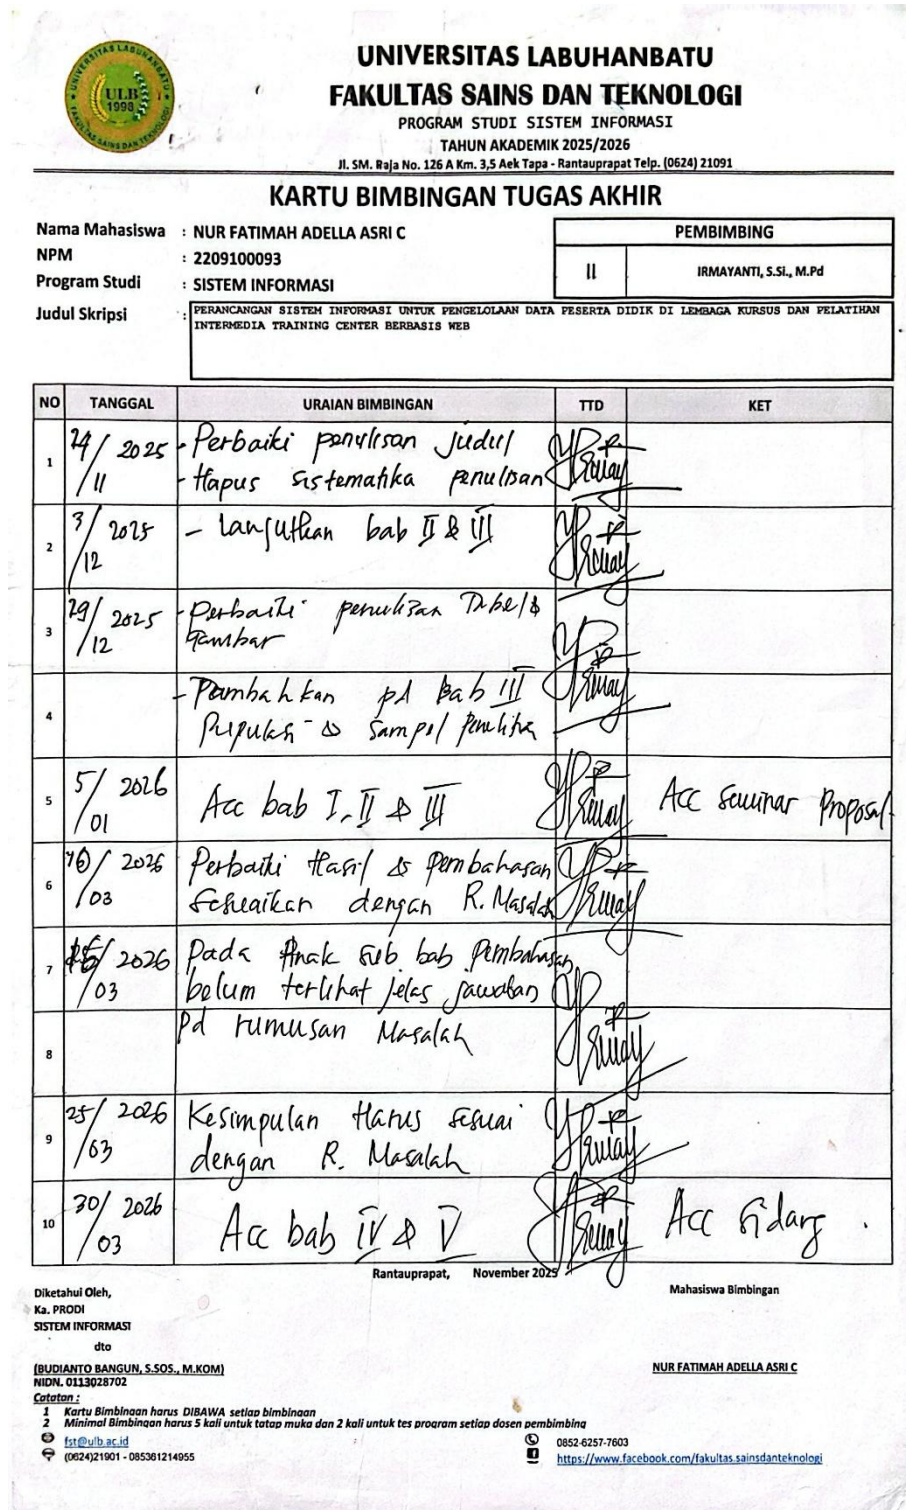 UNIVERSITAS LABUHANBATU
FAKULTAS SAINS DAN TEKNOLOGI
PROGRAM STUDI SISTEM INFORMASI
TAHUN AKADEMIK 2025/2026
Jl. SM. Raja No. 126 A Km. 3,5 Aek Tapa - Rantauprapat Telp. (0624) 21091
UNIVERSITAS LABUHANBATU
ULB
1998
FAKULTAS SAINS DAN TEKNOLOGI
KARTU BIMBINGAN TUGAS AKHIR
Nama Mahasiswa : NUR FATIMAH ADELLA ASRI C
NPM : 2209100093
Program Studi : SISTEM INFORMASI
PEMBIMBING
II IRMAYANTI, S.Si., M.Pd
Judul Skripsi : PERANCANGAN SISTEM INFORMASI UNTUK PENGELOLAAN DATA PESERTA DIDIK DI LEMBAGA KURSUS DAN PELATIHAN
INTERMEDIA TRAINING CENTER BERBASIS WEB
NO TANGGAL URAIAN BIMBINGAN TTD KET
1 24/11 2025 - Perbaiki penulisan judul
- Hapus sistematika penulisan
2 3/12 2025 - Lanjutkan bab II & III
3 29/12 2025 - Perbaiki penulisan Tabel &
Gambar
4 - Tambahkan pd bab III
Populasi & Sampel Penelitian
5 5/01 2026 Acc bab I, II & III Acc Seminar Proposal
6 10/03 2026 Perbaiki Hasil & Pembahasan
Sesuaikan dengan R. Masalah
7 /03 2026 Pada Anak sub bab Pembahasan
belum terlihat jelas jawaban
8 Pd rumusan Masalah
9 25/03 2026 Kesimpulan Harus sesuai
dengan R. Masalah
10 30/03 2026 Acc bab IV & V Acc Sidang .
Rantauprapat, November 2025
Diketahui Oleh,
Ka. PRODI
SISTEM INFORMASI
dto
(BUDIANTO BANGUN, S.SOS., M.KOM)
NIDN. 0113028702
Mahasiswa Bimbingan
NUR FATIMAH ADELLA ASRI C
Catatan :
1 Kartu Bimbingan harus DIBAWA setiap bimbingan
2 Minimal Bimbingan harus 5 kali untuk tatap muka dan 2 kali untuk tes program setiap dosen pembimbing
fst@ulb.ac.id
(0624)21901 - 085361214955
0852-6257-7603
https://www.facebook.com/fakultas.sainsdanteknologi